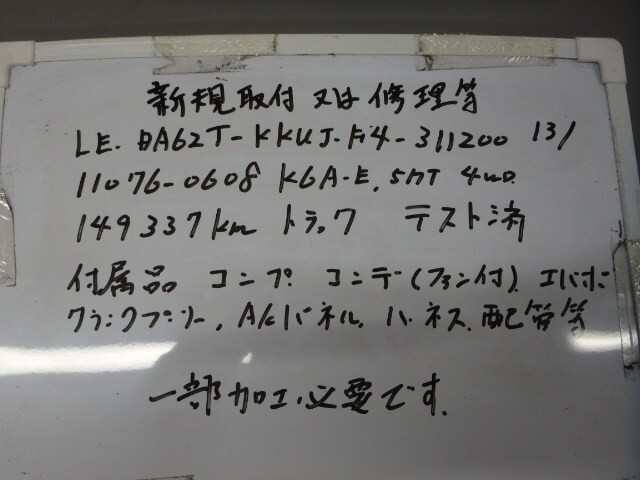 新規取付 又は修理等
LE-DA62T-KKUJ-F4-311200 131
11076-0608 K6A-E, 5MT 4WD
149337km トラック テスト済
付属品 コンプ コンデ(ファン付) エバポ
クランクプーリー, A/Cパネル, ハーネス, 配管等
一部加工必要です.